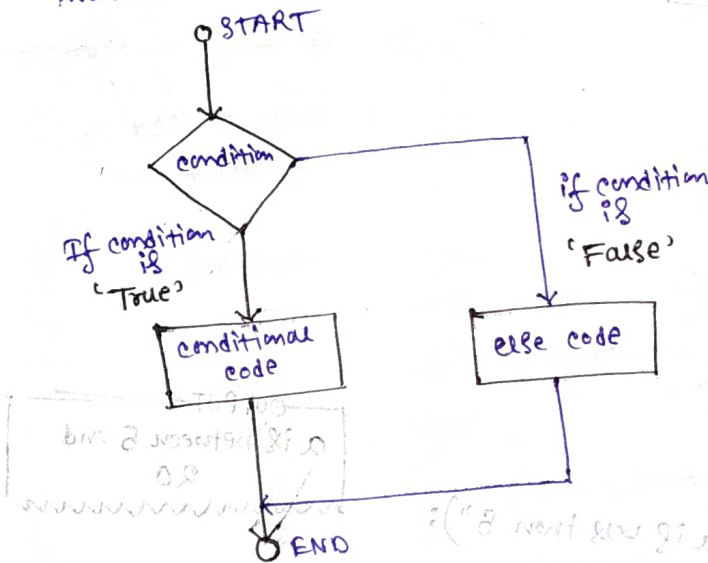 START
condition
If condition
is
'True'
if condition
is
'False'
conditional
code
else code
END